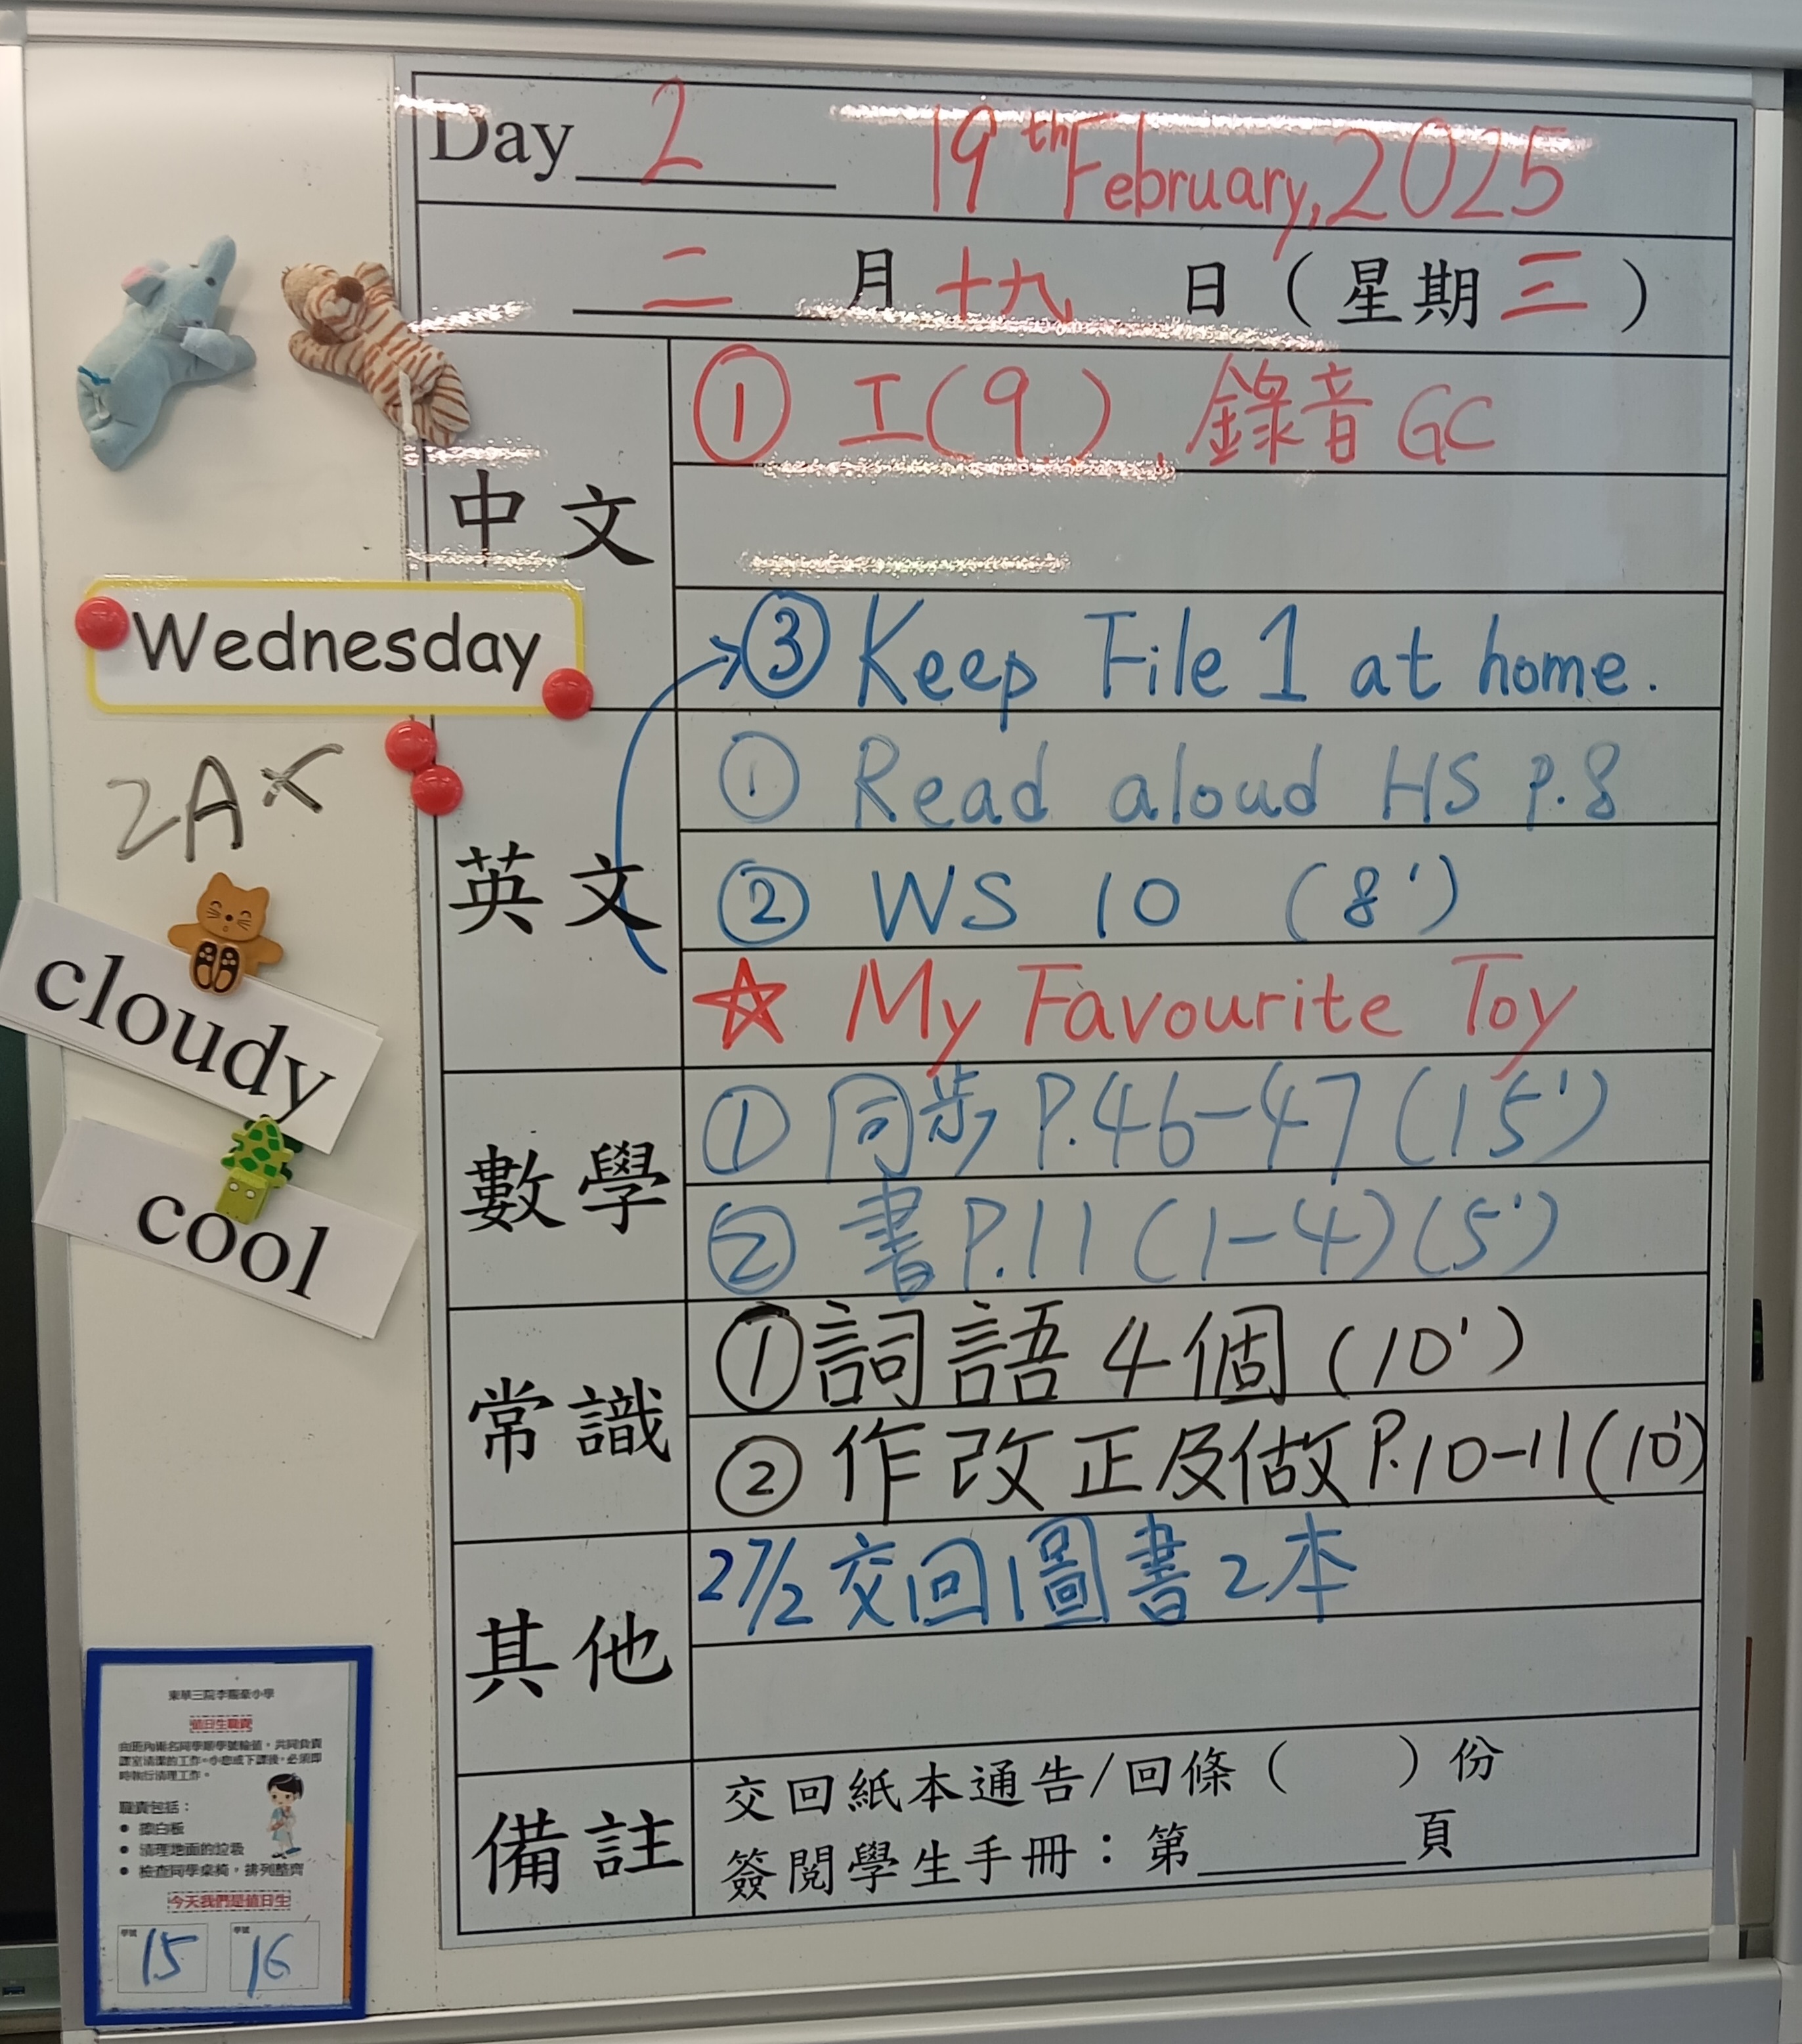 Day 2 19th February, 2025
二 月 十九 日 ( 星期 三 )
中文
① 工(9)、錄音 GC
③ Keep File 1 at home.
英文
① Read aloud HS P.8
② WS 10 (8')
☆ My Favourite Toy
數學
① 同步 P.46-47 (15')
② 書 P.11 (1-4) (5')
常識
① 詞語 4 個 (10')
② 作改正及做 P.10-11 (10')
其他
27/2 交回圖書 2 本
備註
交回紙本通告/回條 ( ) 份
簽閱學生手冊：第 頁
Wednesday
2A
cloudy
cool
值日生職責
由班內兩名同學順學號輪值，共同負責
課室清潔的工作。小息或下課後，必須即
時執行清理工作。
職責包括：
● 擦白板
● 清理地面的垃圾
● 檢查同學桌椅，排列整齊
今天我們是值日生
學號 學號
15 16